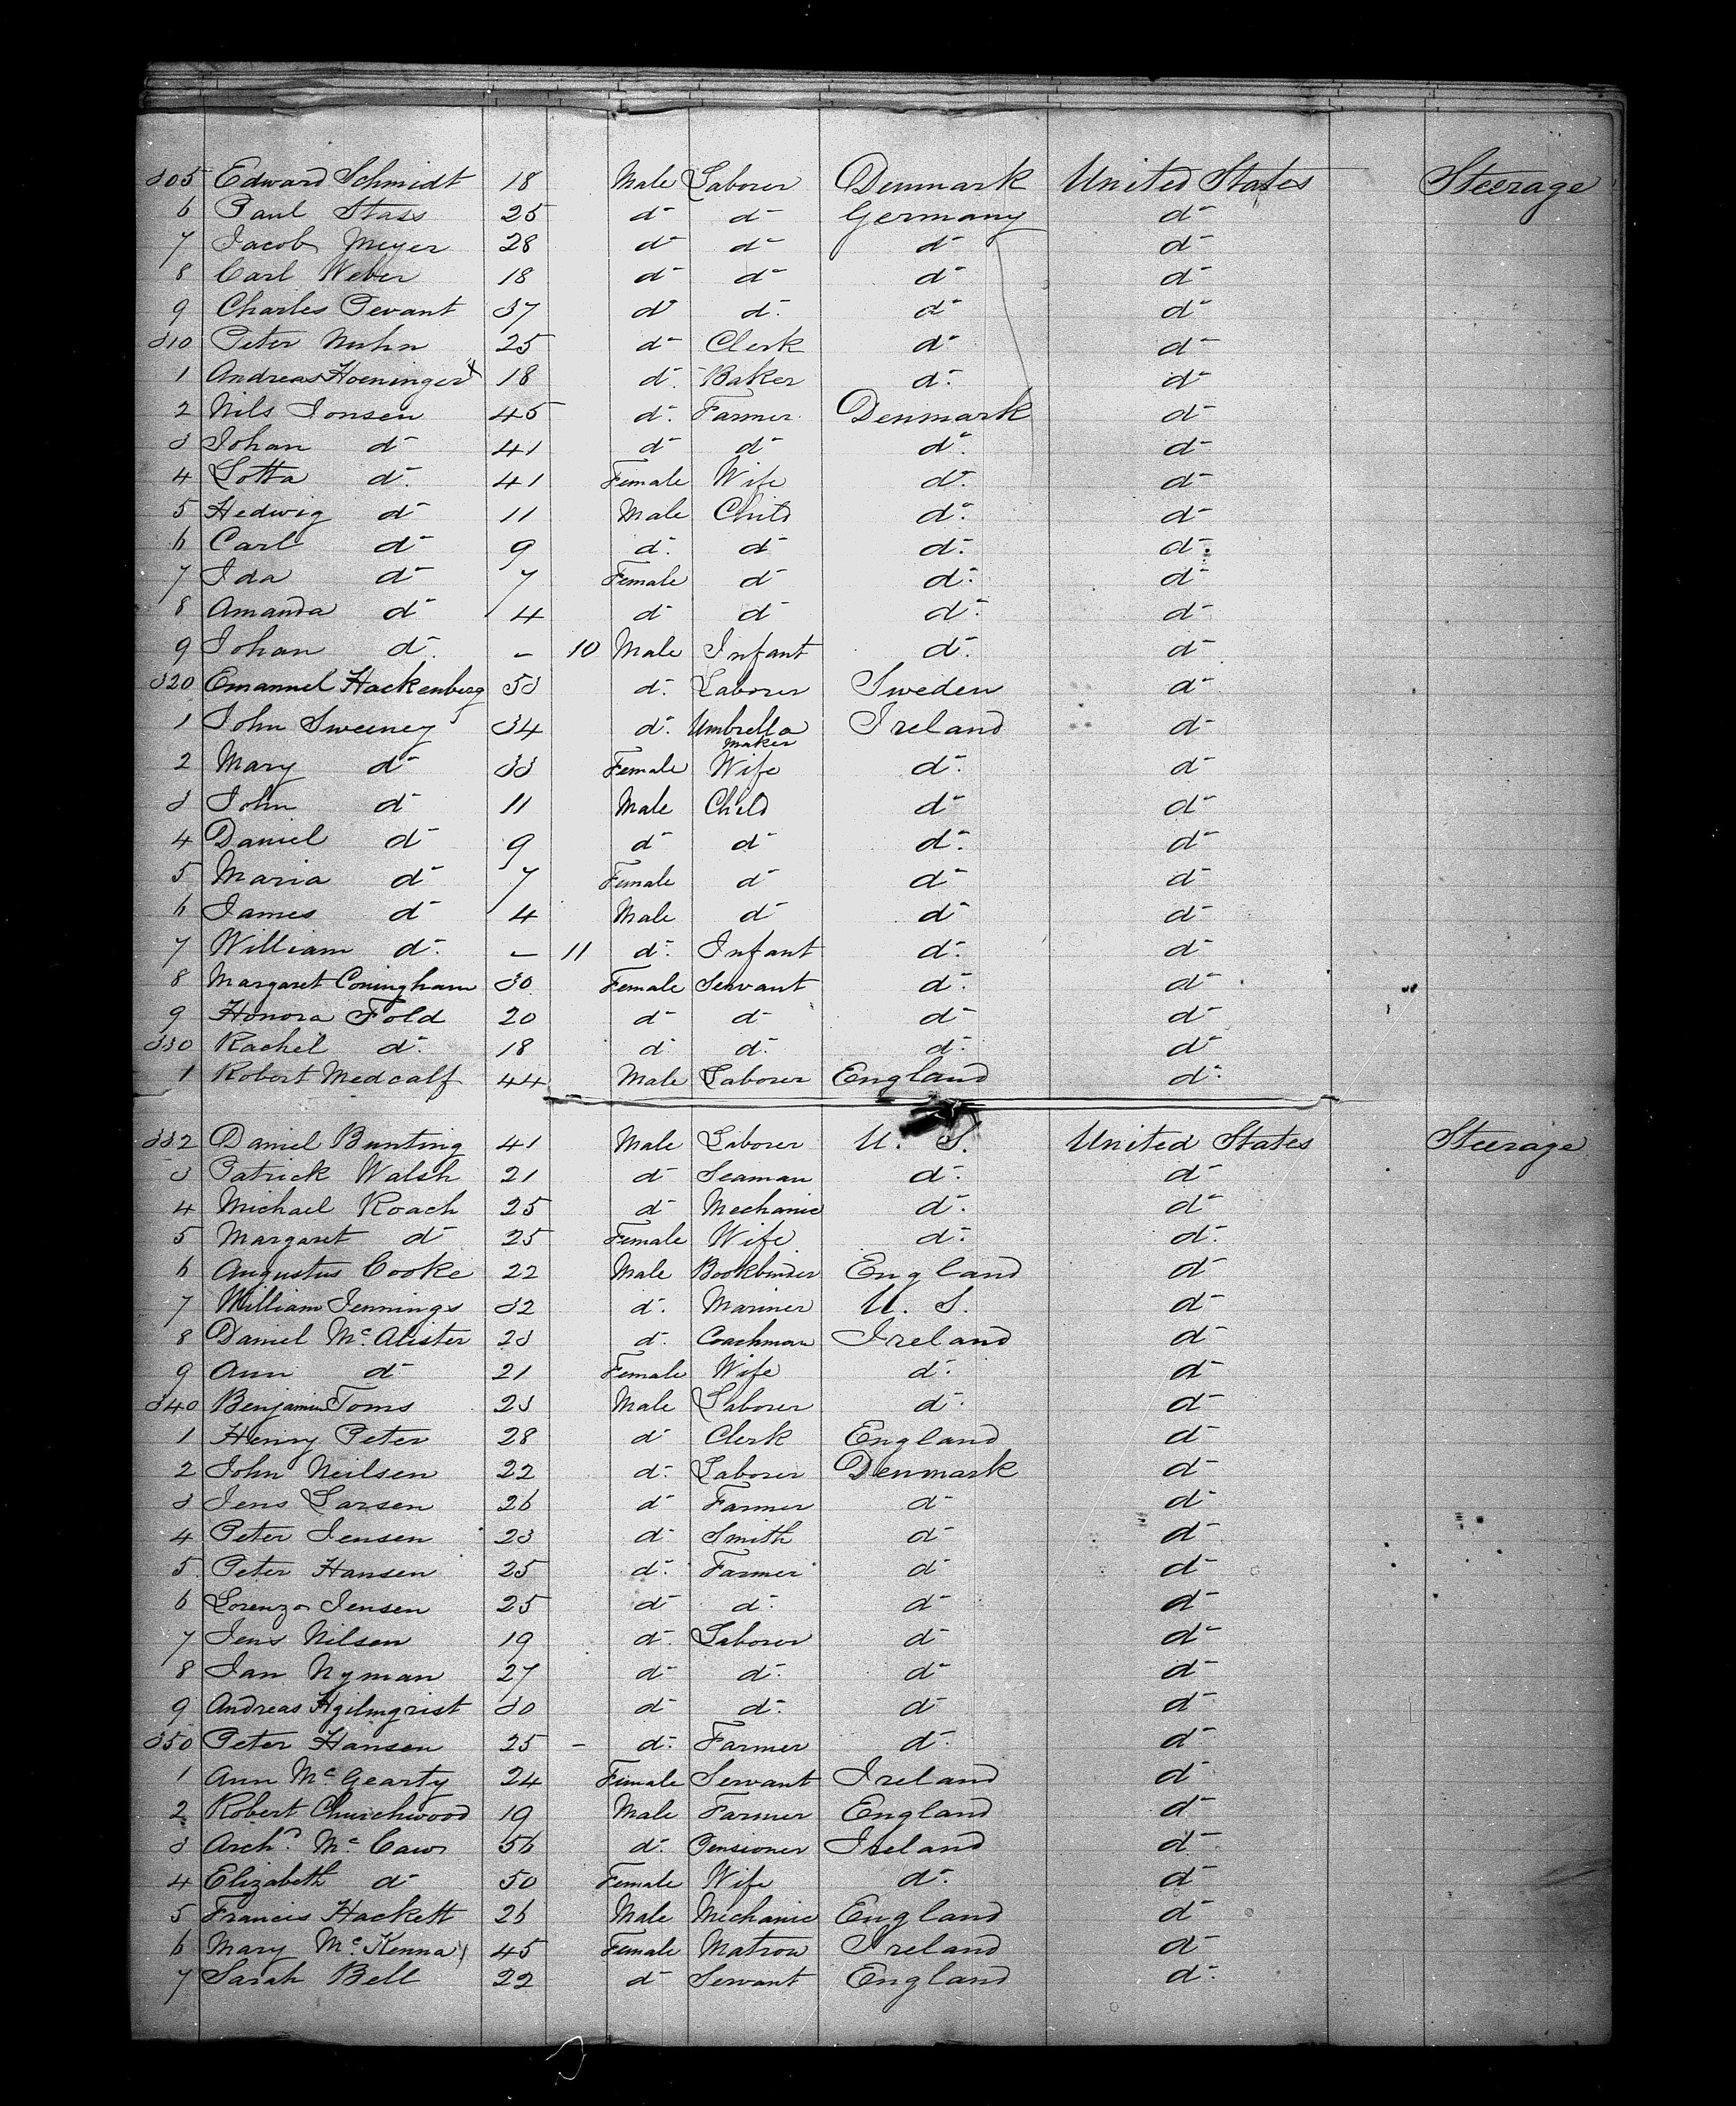 305 Edward Schmidt 18 Male Laborer Denmark United States Steerage
6 Paul Stass 25 do do Germany do
7 Jacob Meyer 28 do do do do
8 Carl Weber 18 do do do do
9 Charles Pevant 37 do do do do
310 Peter Nuhn 25 do Clerk do do
1 Andreas Hoeninger 18 do Baker do do
2 Nils Jonsen 45 do Farmer Denmark do
3 Johan do 41 do do do do
4 Lotta do 41 Female Wife do do
5 Hedwig do 11 Male Child do do
6 Carl do 9 do do do do
7 Ida do 7 Female do do do
8 Amanda do 4 do do do do
9 Johan do - 10 Male Infant do do
320 Emanuel Hackenberg 53 do Laborer Sweden do
1 John Sweeney 34 do Umbrella maker Ireland do
2 Mary do 33 Female Wife do do
3 John do 11 Male Child do do
4 Daniel do 9 do do do do
5 Maria do 7 Female do do do
6 James do 4 Male do do do
7 William do - 11 do Infant do do
8 Margaret Coningham 30 Female Servant do do
9 Honora Fold 20 do do do do
330 Rachel do 18 do do do do
1 Robert Medcalf 44 Male Laborer England do
332 Daniel Bunting 41 Male Laborer U. S. United States Steerage
3 Patrick Walsh 21 do Seaman do do
4 Michael Roach 25 do Mechanic do do
5 Margaret do 25 Female Wife do do
6 Augustus Cooke 22 Male Bookbinder England do
7 William Jennings 32 do Mariner U. S. do
8 Daniel McAlister 23 do Coachman Ireland do
9 Ann do 21 Female Wife do do
340 Benjamin Toms 23 Male Laborer do do
1 Henry Peter 28 do Clerk England do
2 John Neilsen 22 do Laborer Denmark do
3 Jens Larsen 26 do Farmer do do
4 Peter Jensen 23 do Smith do do
5 Peter Hansen 25 do Farmer do do
6 Lorenzo Jensen 25 do do do do
7 Jens Nilsen 19 do Laborer do do
8 Jan Nyman 27 do do do do
9 Andreas 30 do do do do
350 Peter Hansen 25 - do Farmer do do
1 Ann McGearty 24 Female Servant Ireland do
2 Robert Churchwood 19 Male Farmer England do
3 Archd. McCaw 56 do Pensioner Ireland do
4 Elizabeth do 50 Female Wife do do
5 Francis Hackett 26 Male Mechanic England do
6 Mary McKenna 45 Female Matron Ireland do
7 Sarah Bell 22 do Servant England do